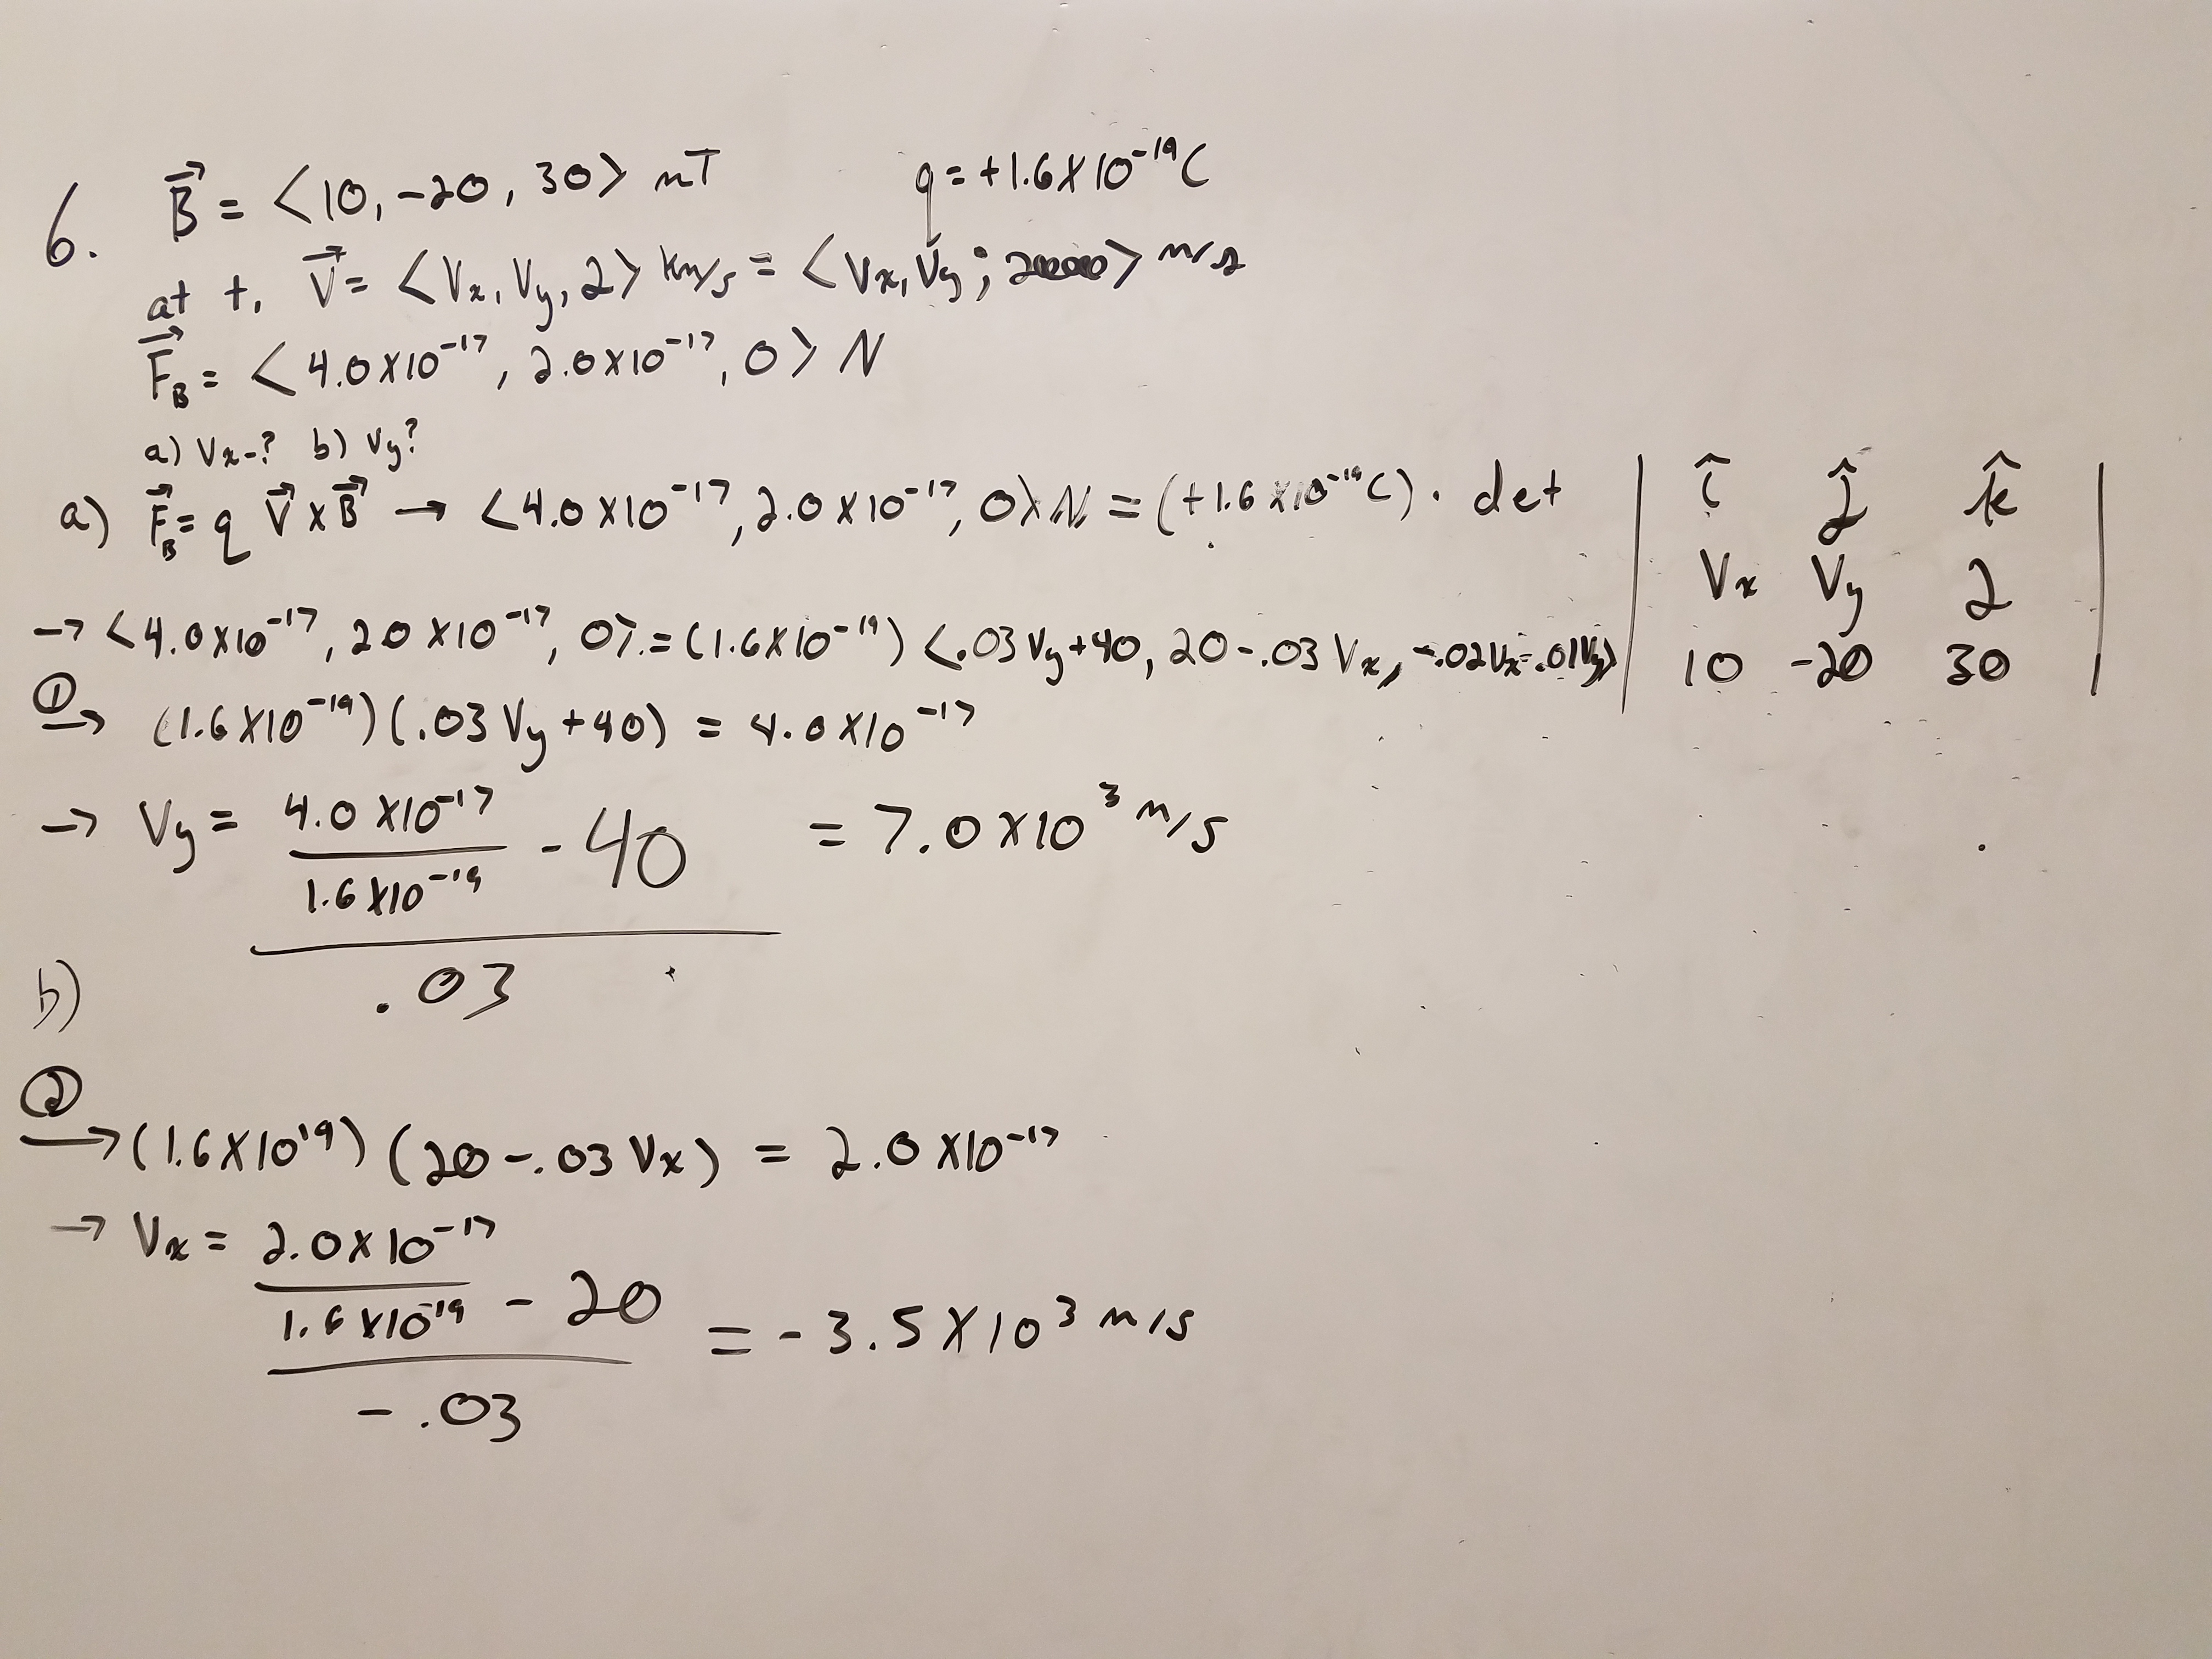 6. B⃗ = <10, -20, 30> mT q = +1.6X10⁻¹⁹C
at t, V⃗ = <Vx, Vy, 2> km/s = <Vx, Vy; 2000> m/s
F⃗B = <4.0X10⁻¹⁷, 2.0X10⁻¹⁷, 0> N
a) Vx-? b) Vy?
a) F⃗B = q V⃗ x B⃗ → <4.0X10⁻¹⁷, 2.0X10⁻¹⁷, 0>N = (+1.6X10⁻¹⁹C) · det | î ĵ k̂
Vx Vy 2
10 -20 30 |
→ <4.0X10⁻¹⁷, 2.0X10⁻¹⁷, 0> = (1.6X10⁻¹⁹) <.03Vy+40, 20-.03Vx, -.02Vx-.01Vy>
① → (1.6X10⁻¹⁹)(.03Vy+40) = 4.0X10⁻¹⁷
→ Vy = 4.0X10⁻¹⁷
1.6X10⁻¹⁹ - 40 = 7.0X10³ m/s
.03
b)
② → (1.6X10¹⁹)(20-.03Vx) = 2.0X10⁻¹⁷
→ Vx = 2.0X10⁻¹⁷
1.6X10⁻¹⁹ - 20 = -3.5X10³ m/s
-.03